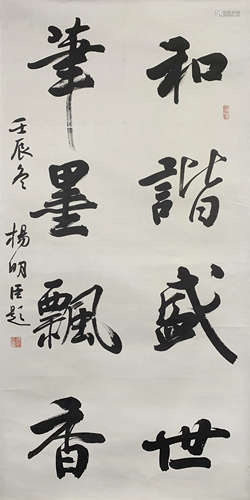 和諧盛世
筆墨飄香
壬辰冬
楊明臣題